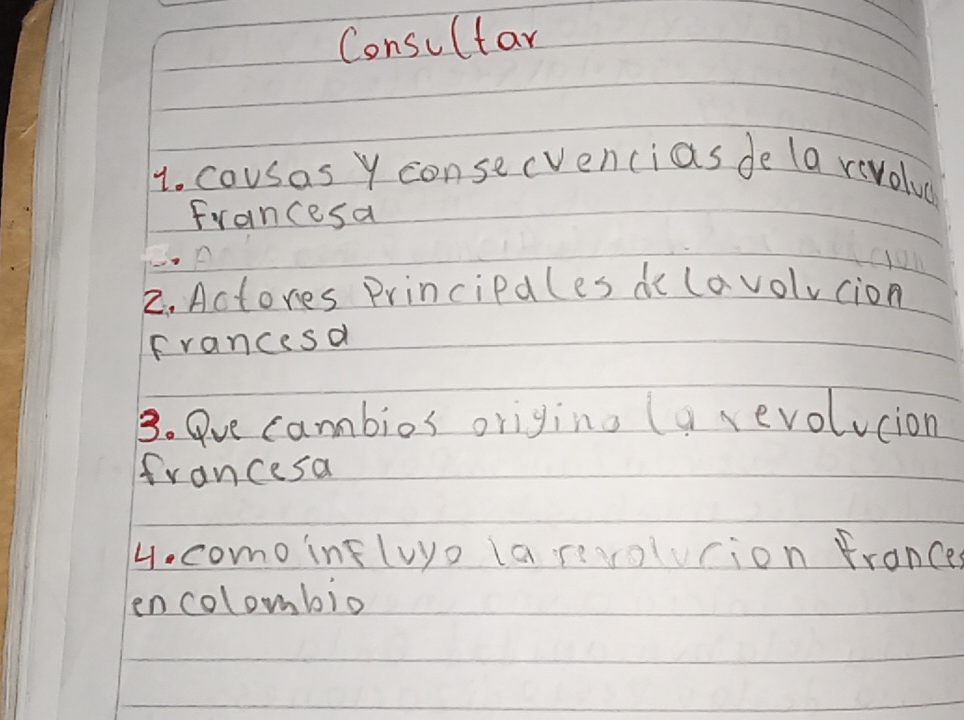 Consultar
1. causas y consecuencias de la revoluc
francesa
2. Actores Principales de la volucion
francesa
3. Que cambios origino la revolucion
francesa
4. como influyo la revolucion frances
en colombio